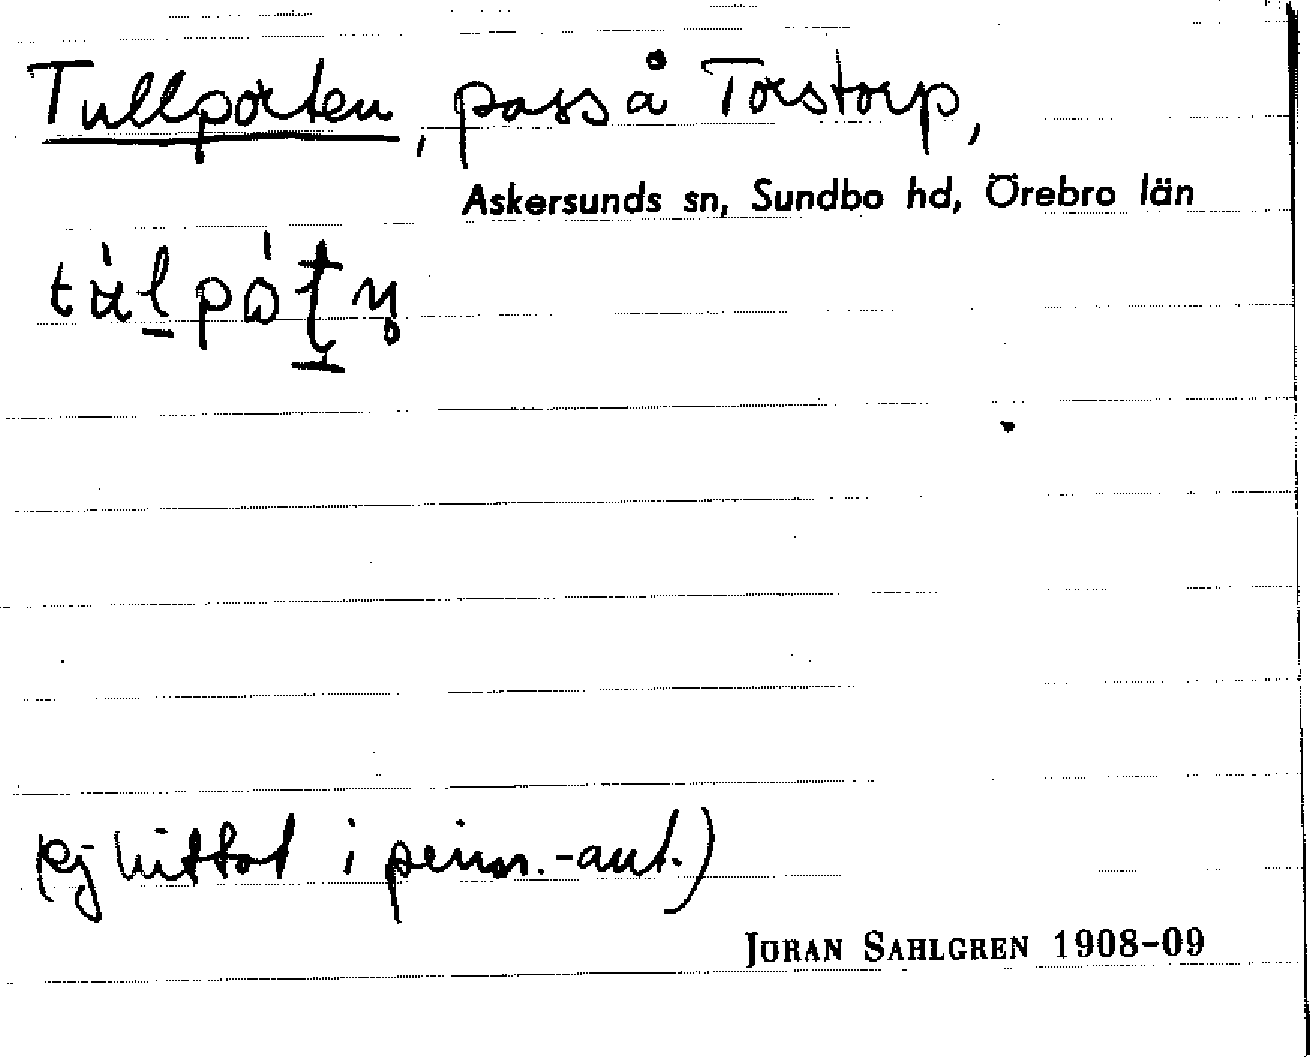 Tullporten, pass å Torstorp,
Askersunds sn, Sundbo hd, Örebro län
(ej hittat i penn.-ant.)
JÖRAN SAHLGREN 1908-09